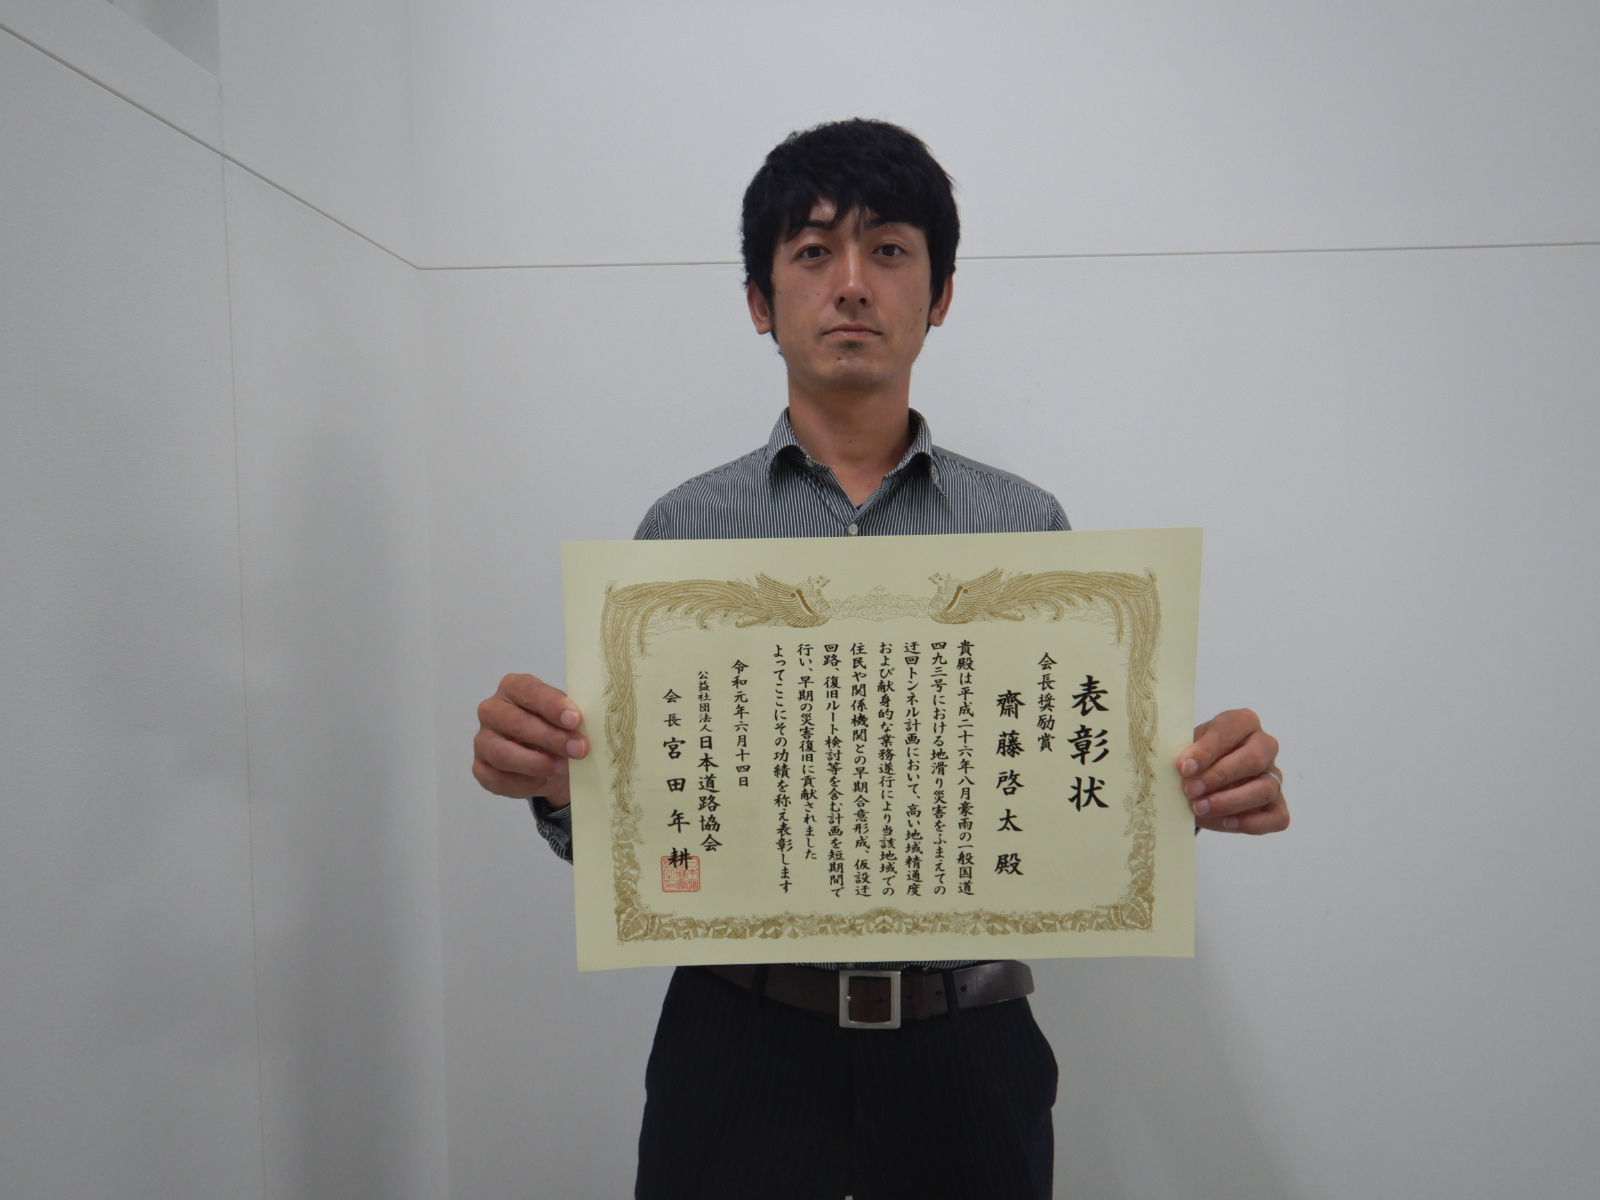 表彰状
会長奨励賞
齋藤啓太殿
貴殿は平成二十六年八月豪雨の一般国道
四九三号における地滑り災害をふまえての
迂回トンネル計画において、高い地域精通度
および献身的な業務遂行により当該地域での
住民や関係機関との早期合意形成、仮設迂
回路、復旧ルート検討等を含む計画を短期間で
行い、早期の災害復旧に貢献されました
よってここにその功績を称え表彰します
令和元年六月十四日
公益社団法人日本道路協会
会長宮田年耕